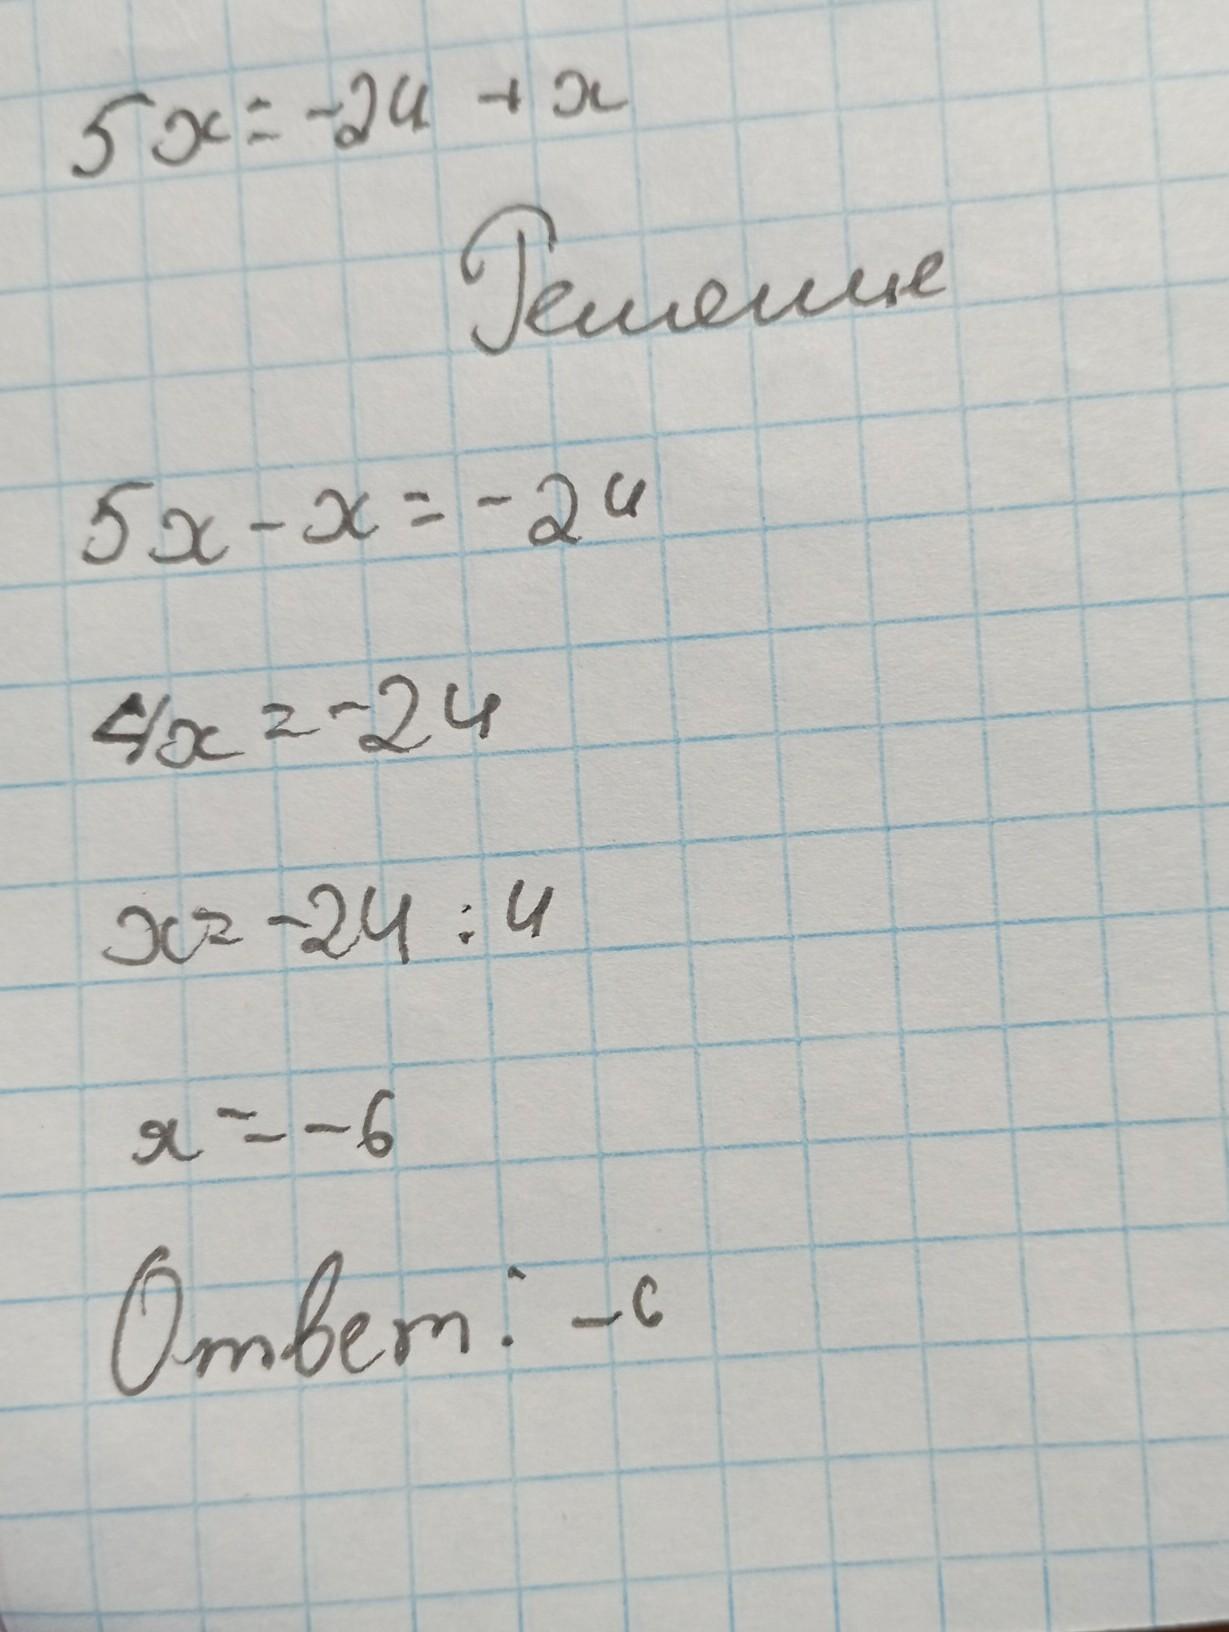 5x = -24 + x
Решение
5x - x = -24
4x = -24
x = -24 : 4
x = -6
Ответ: -6